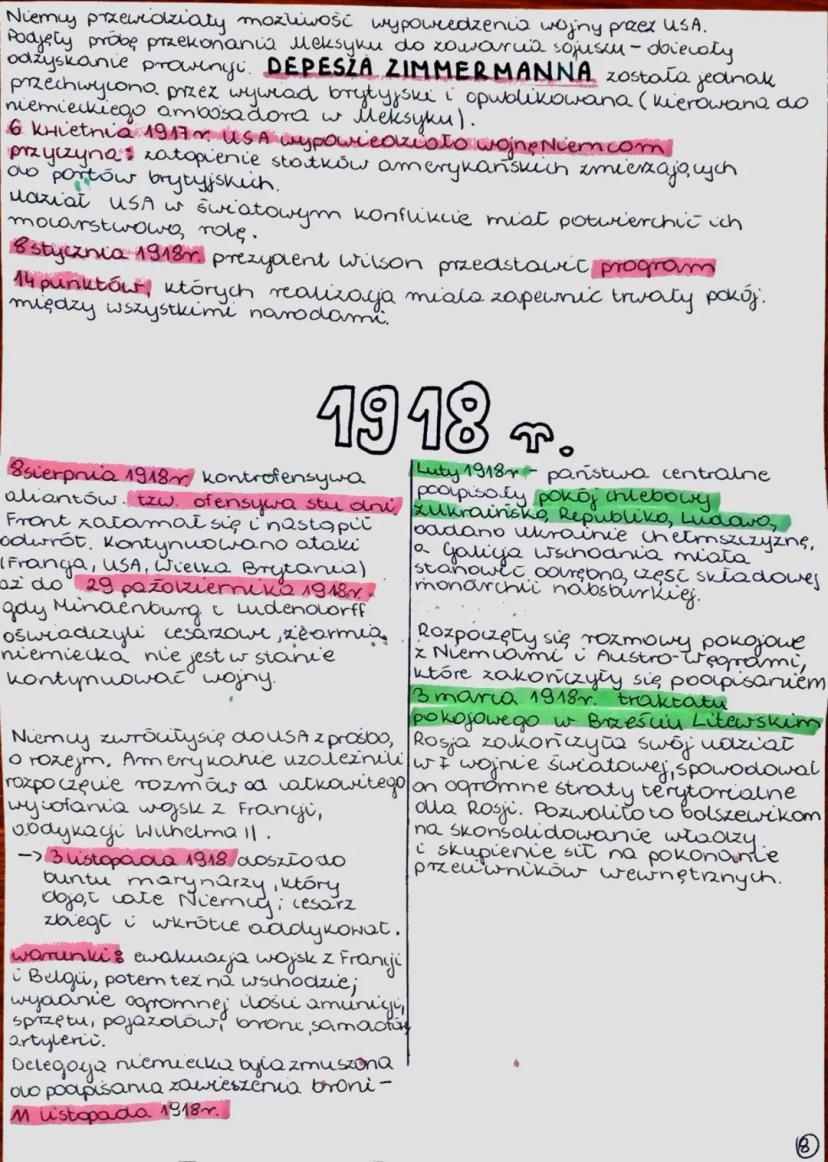 Niemcy przewidziały możliwość wypowiedzenia wojny przez USA.
Podjęły próbę przekonania Meksyku do zawarcia sojuszu - obiecały
odzyskanie prowincji. DEPESZA ZIMMERMANNA została jednak
przechwycona przez wywiad brytyjski i opublikowana (kierowana do
niemieckiego ambasadora w Meksyku).
6 kwietnia 1917r. USA wypowiedziało wojnę Niemcom
przyczyna: zatopienie statków amerykańskich zmierzających
do portów brytyjskich.
Udział USA w światowym konflikcie miał potwierdzić ich
mocarstwową rolę.
8 stycznia 1918r. prezydent Wilson przedstawił program
14 punktów, których realizacja miała zapewnić trwały pokój.
między wszystkimi narodami.
1918 r.
8 sierpnia 1918r kontrofensywa
aliantów. tzw. ofensywa stu dni
Front załamał się i nastąpił
odwrót. Kontynuowano ataki
(Francja, USA, Wielka Brytania)
aż do 29 października 1918r.
gdy Hindenburg i Ludendorff
oświadczyli cesarzowi, że armia
niemiecka nie jest w stanie
kontynuować wojny.
Niemcy zwróciły się do USA z prośbą
o rozejm. Amerykanie uzależnili
rozpoczęcie rozmów od całkowitego
wycofania wojsk z Francji,
abdykacji Wilhelma II.
-> 3 listopada 1918 doszło do
buntu marynarzy, który
objął całe Niemcy; cesarz
zbiegł i wkrótce abdykował.
warunki: ewakuacja wojsk z Francji
i Belgii, potem też na wschodzie;
wydanie ogromnej ilości amunicji,
sprzętu, pojazdów, broni, samolotów
artylerii.
Delegacja niemiecka była zmuszona
do podpisania zawieszenia broni -
11 listopada 1918r.
Luty 1918r - państwa centralne
podpisały pokój chlebowy
z Ukraińską Republiką Ludową,
oddano Ukrainie Chełmszczyznę,
a Galicja Wschodnia miała
stanowić odrębną część składowej
monarchii habsburskiej.
Rozpoczęły się rozmowy pokojowe
z Niemcami i Austro-Węgrami,
które zakończyły się podpisaniem
3 marca 1918r. traktatu
pokojowego w Brześciu Litewskim
Rosja zakończyła swój udział
w I wojnie światowej, spowodował
on ogromne straty terytorialne
dla Rosji. Pozwoliło to bolszewikom
na skonsolidowanie władzy
i skupienie sił na pokonanie
przeciwników wewnętrznych.
8